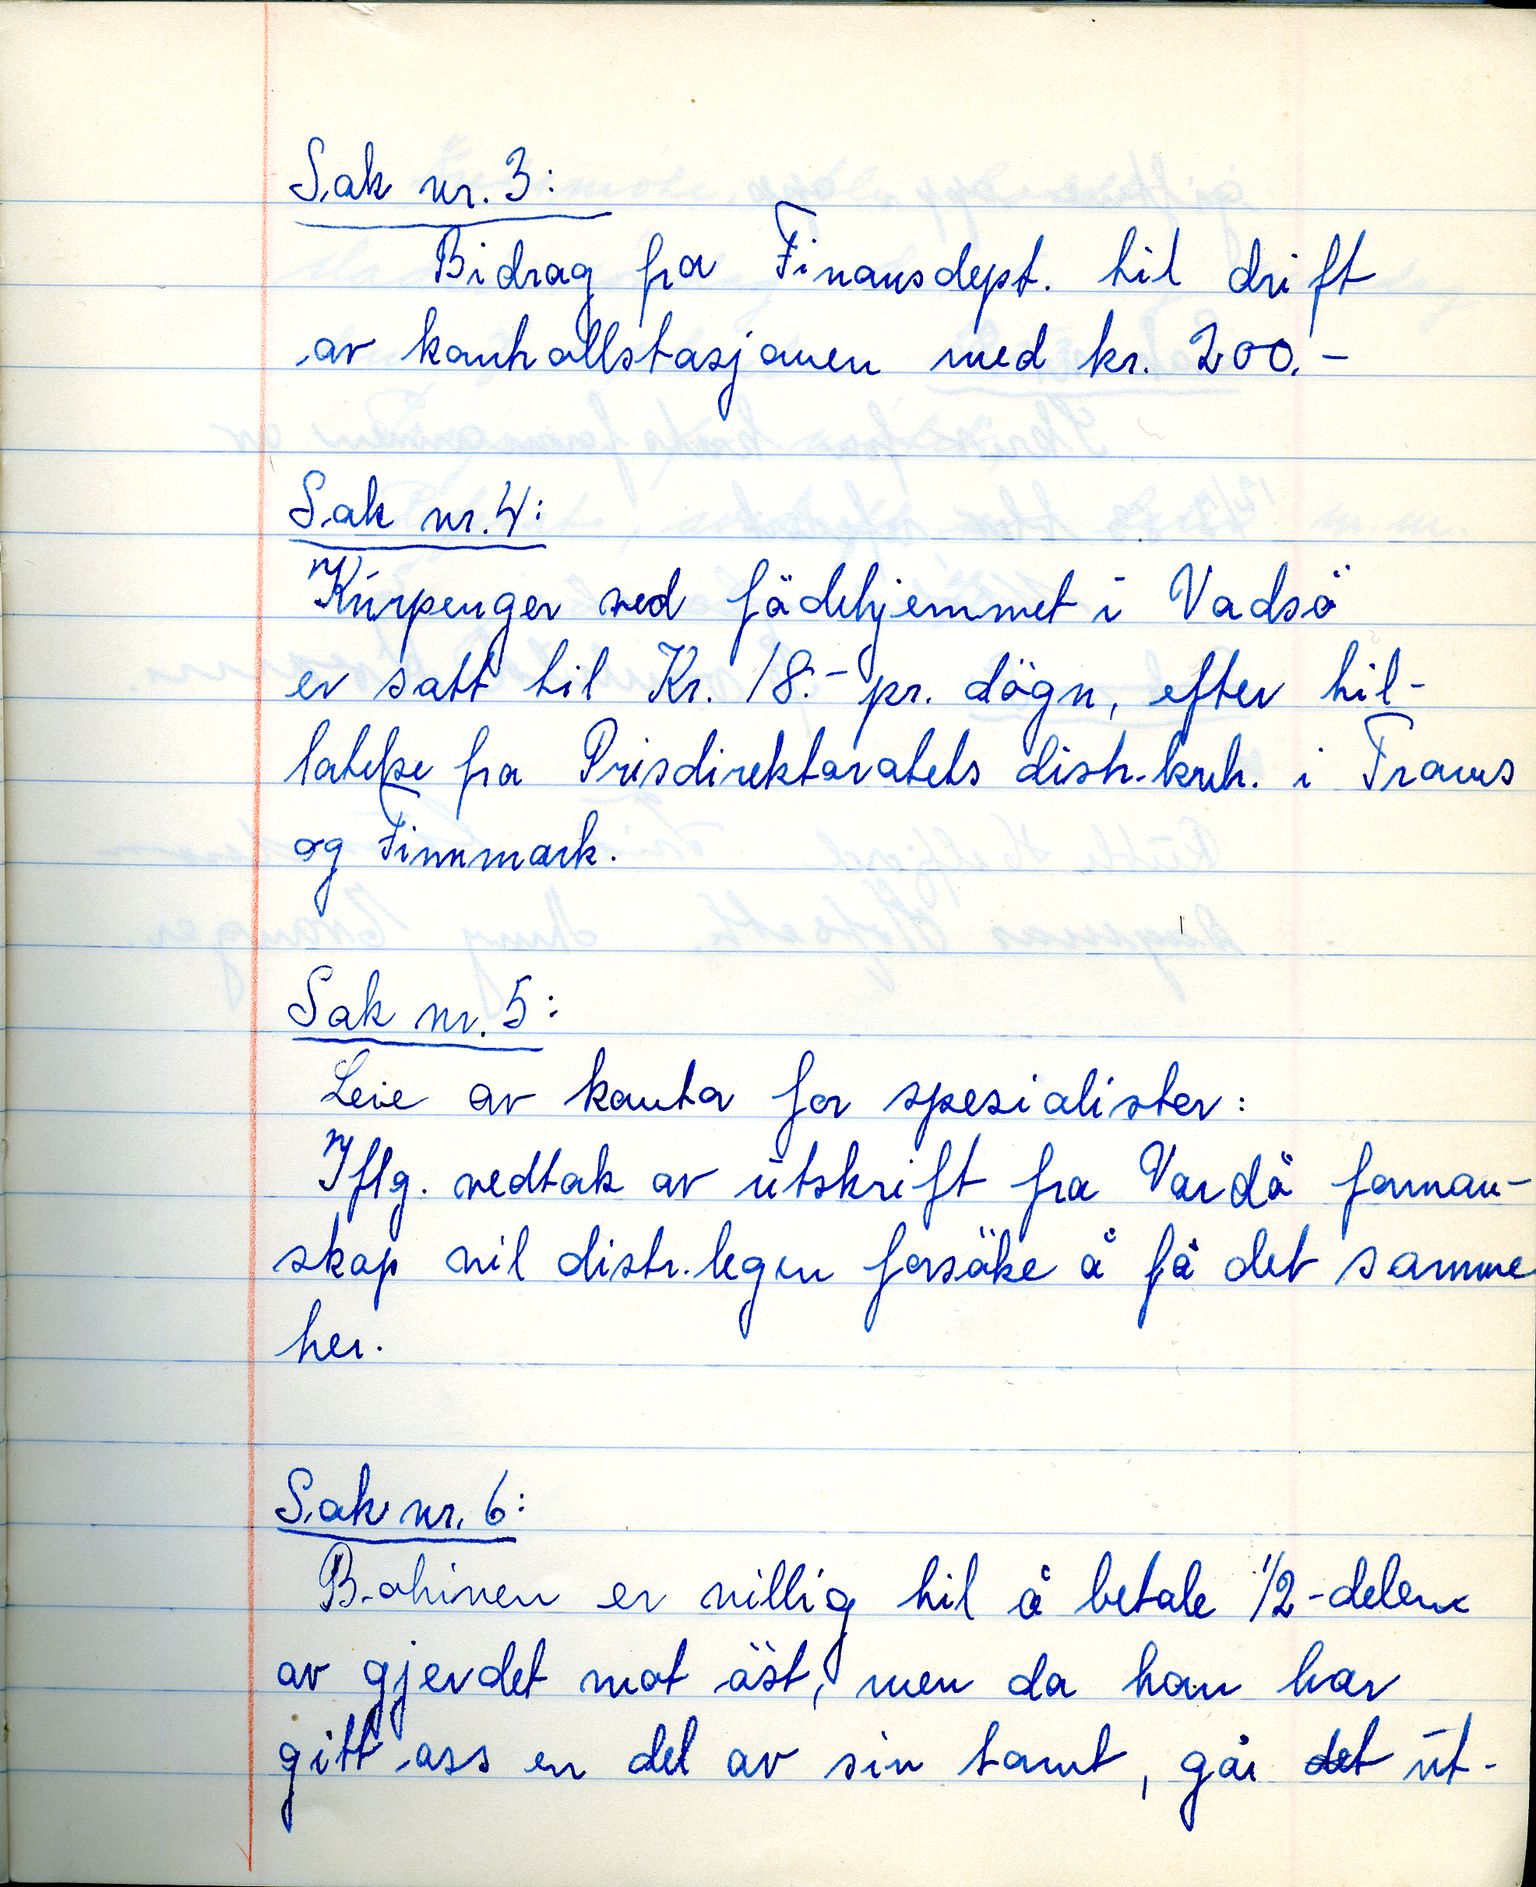 Sak nr. 3:
Bidrag fra Finansdept. til drift
av kontrollstasjonen med kr. 200.-
Sak nr. 4:
Kurpenger ved födehjemmet i Vadsö
er satt til Kr. 18.- pr. dögn, efter til-
latelse fra Prisdirektoratets distr.kntr. i Troms
og Finnmark.
Sak nr. 5:
Leie av kontor for spesialister:
Iflg. vedtak av utskrift fra Vardö forman-
skap vil distr.legen forsöke å få det samme
her.
Sak nr. 6:
er villig til å betale 1/2-delen
av gjerdet mot öst, men da han har
gitt oss en del av sin tomt, går det ut-